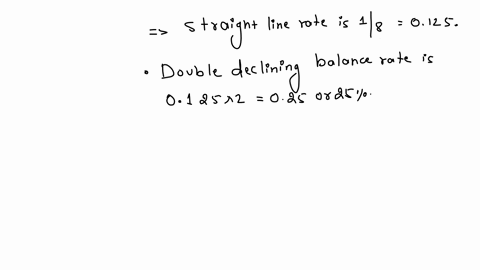 => straight line rate is 1/8 = 0.125.
• Double declining balance rate is
0.125×2 = 0.25 or 25%.